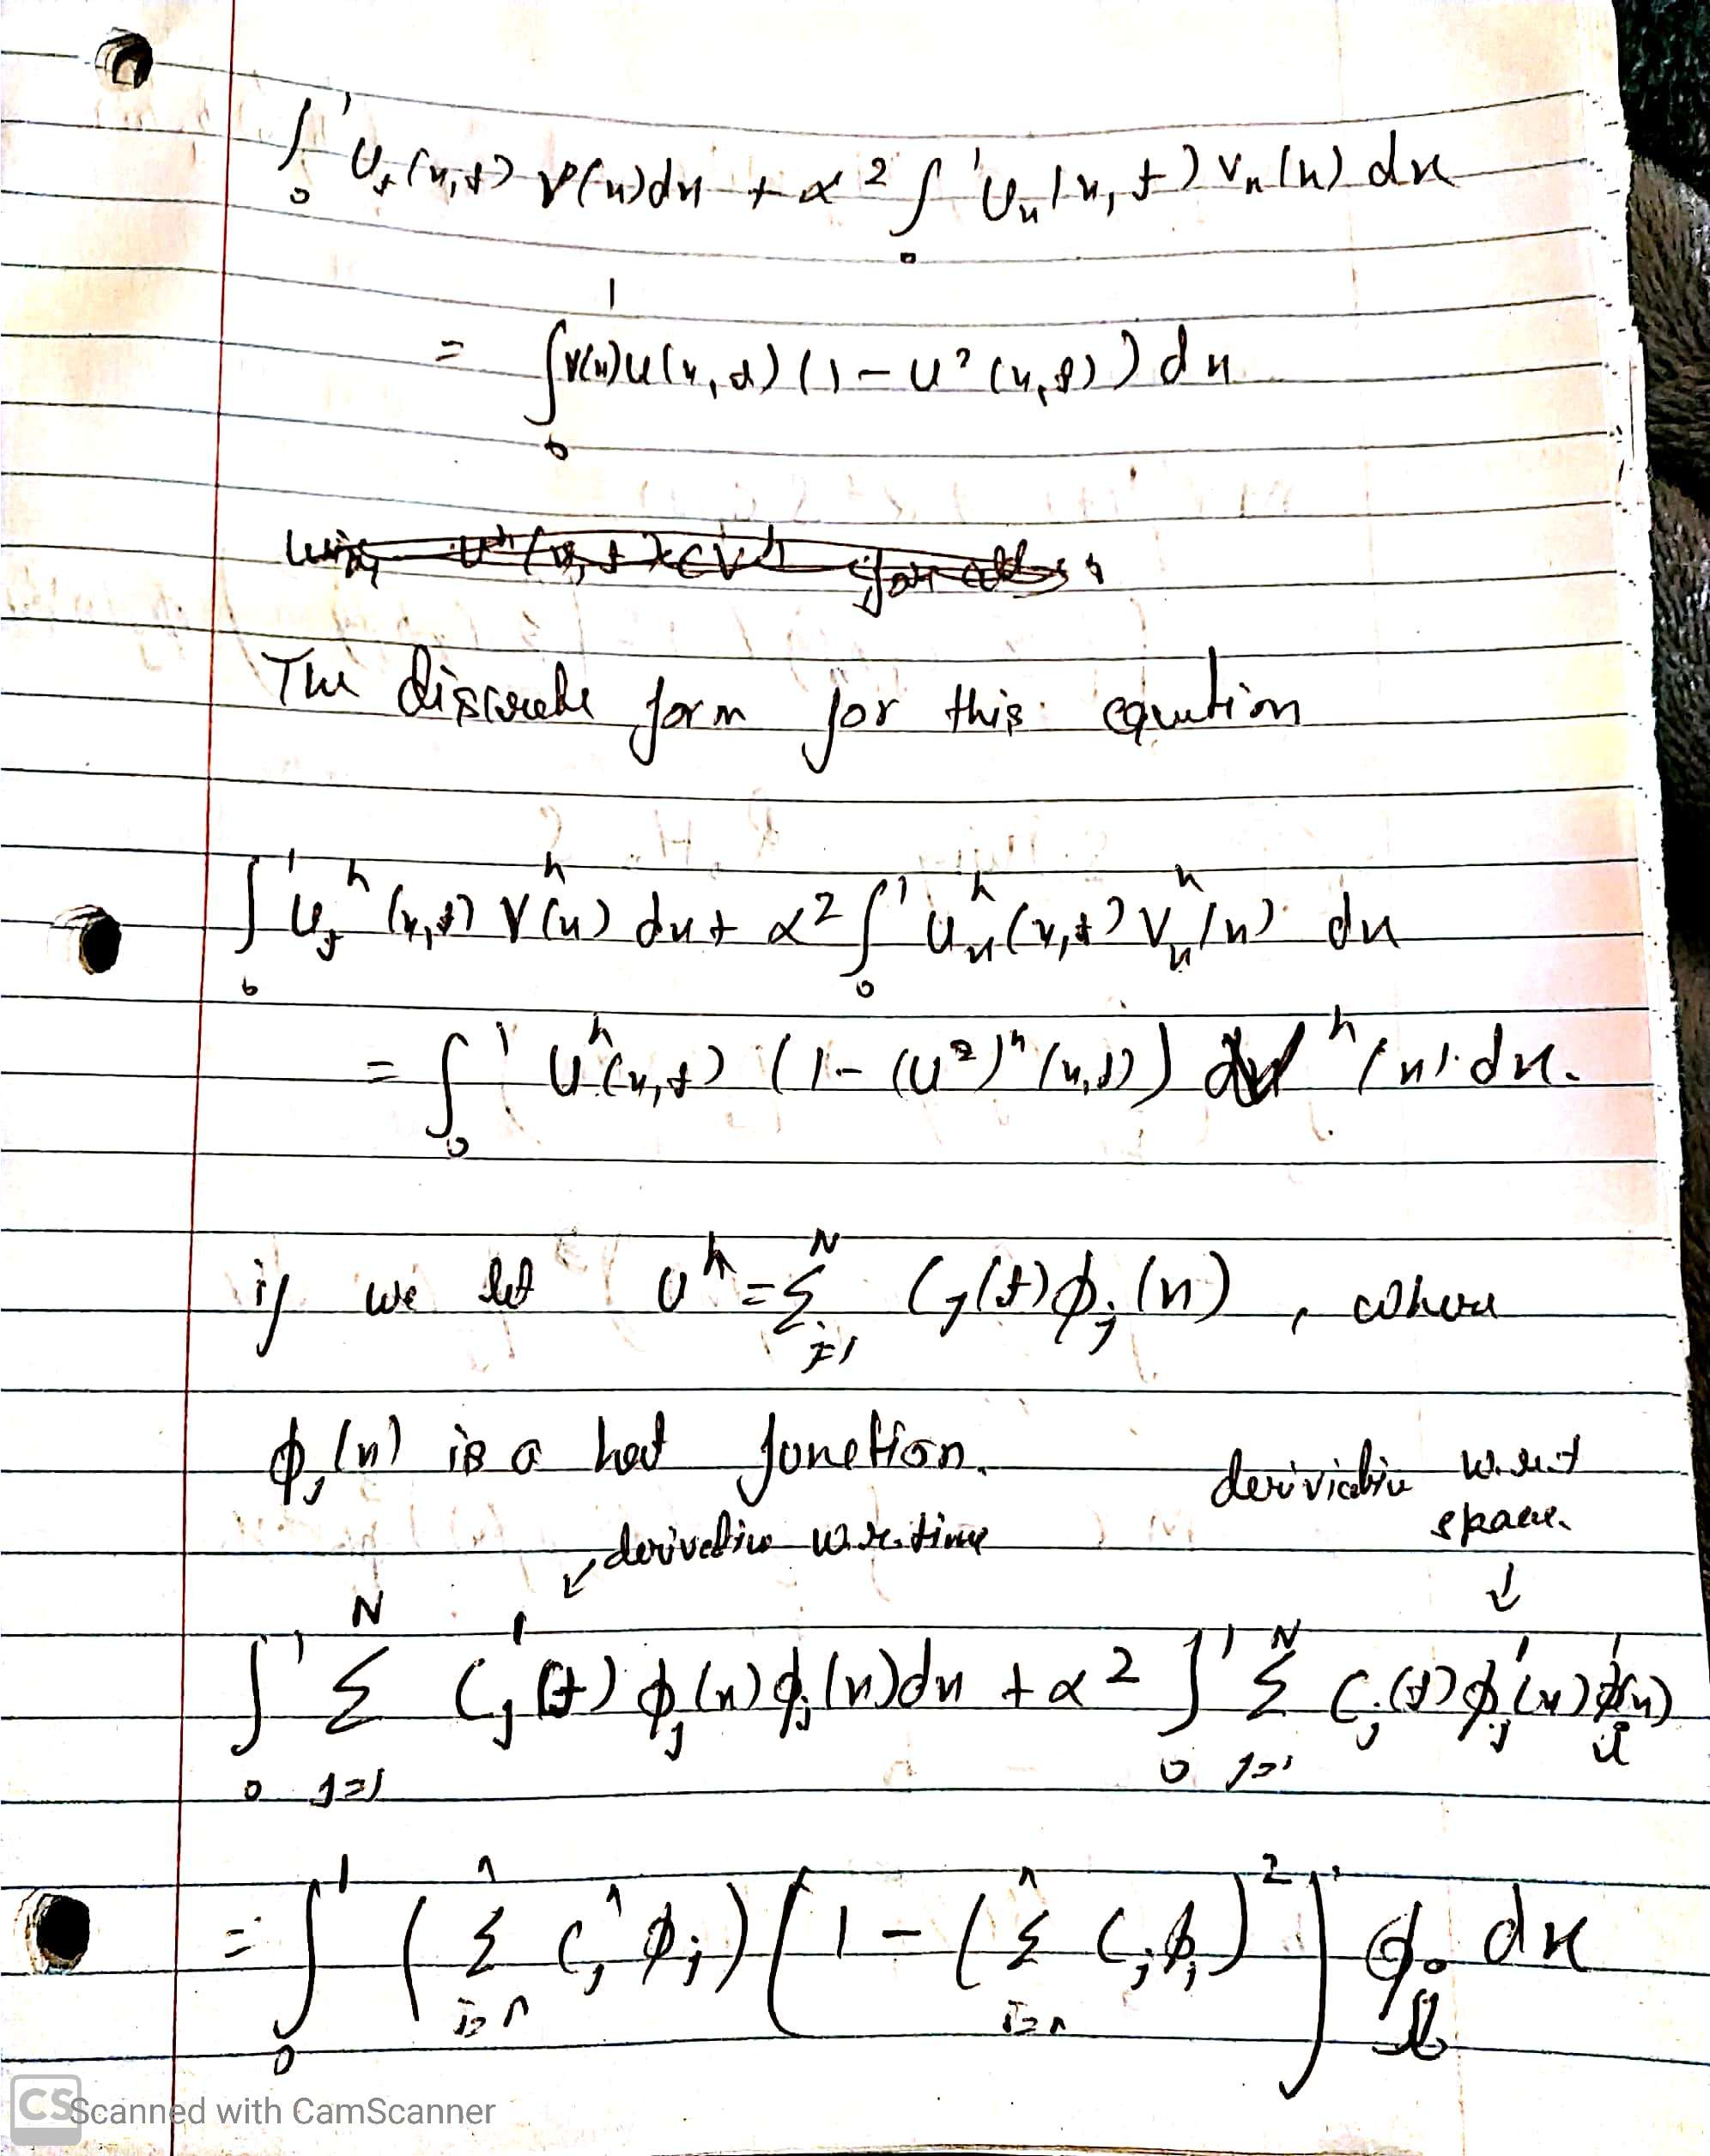 ∫₀¹ u_t(x,t) v(x)dx + α² ∫₀¹ u_x(x,t) v_x(x) dx
= ∫₀¹ v(x)u(x,t) (1 - u²(x,t)) dx
The discrete form for this equation
∫₀¹ u_t^h (x,t) v^h(x) dx + α² ∫₀¹ u_x^h(x,t) v_x^h(x) dx
= ∫₀¹ u^h(x,t) (1 - (u²)^h (x,t)) v^h (x) dx.
if we let u^h = Σ_{j=1}^N C_j(t) φ_j(x), where
φ_j(x) is a hat function.
derivative w.r.t
space.
derivative w.r. time
∫₀¹ Σ_{j=1}^N C_j'(t) φ_j(x) φ_j(x)dx + α² ∫₀¹ Σ_{j=1}^N C_j(t) φ_j'(x) φ_i'(x)
= ∫₀¹ (Σ C_j φ_j) (1 - (Σ C_j φ_j)²) φ dx
CS Scanned with CamScanner